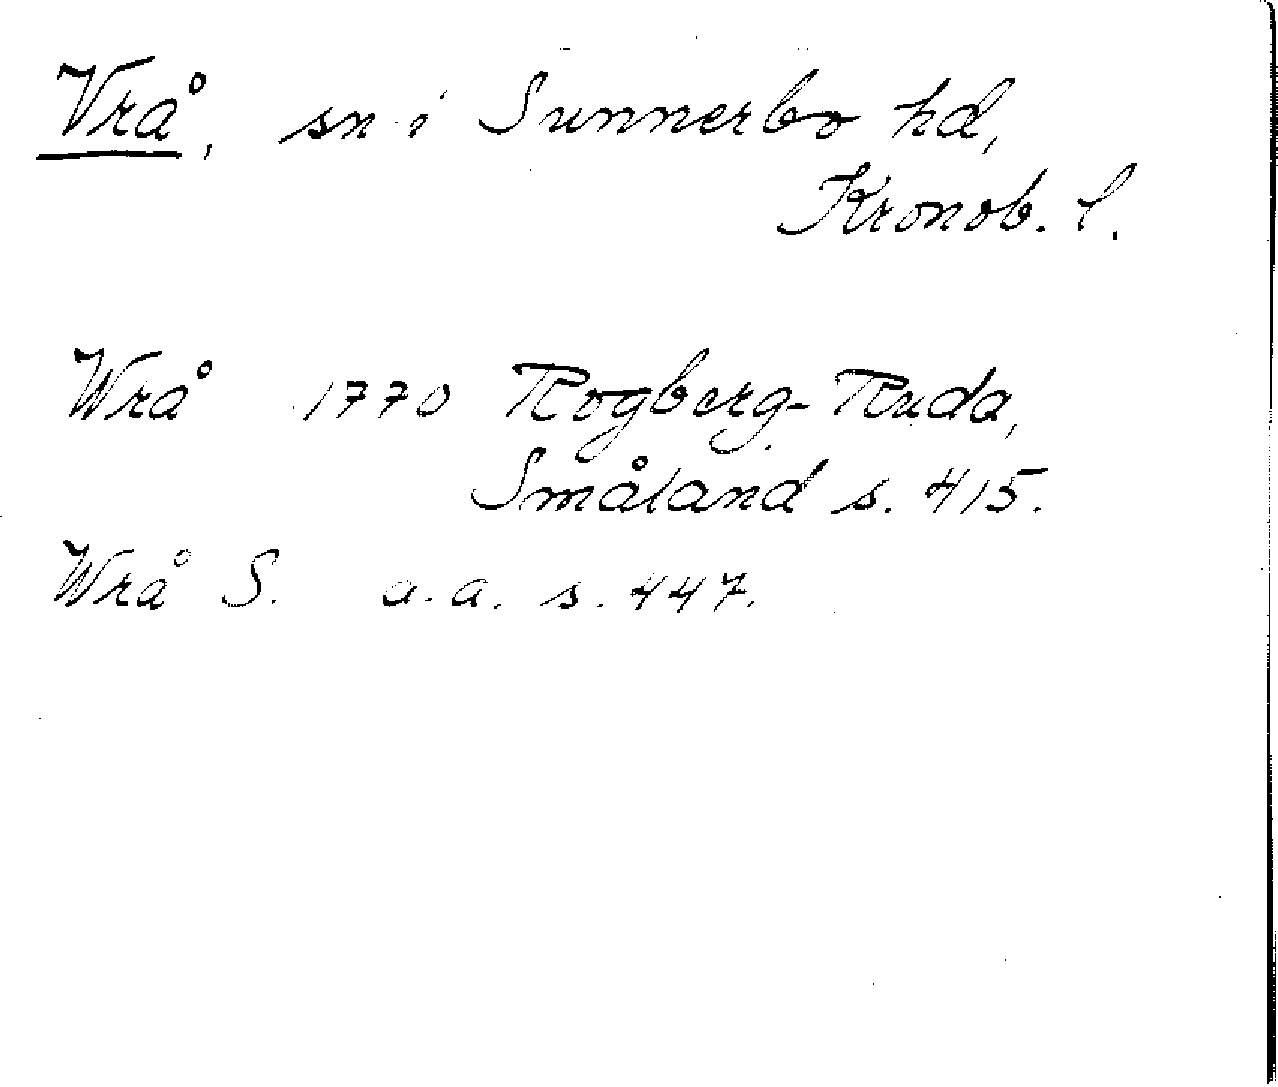 Vrå, sn i Sunnerbo hd,
Kronob. l.
Wrå 1770 Rogberg-Ruda,
Småland s. 415.
Wrå S. a.a. s. 447.